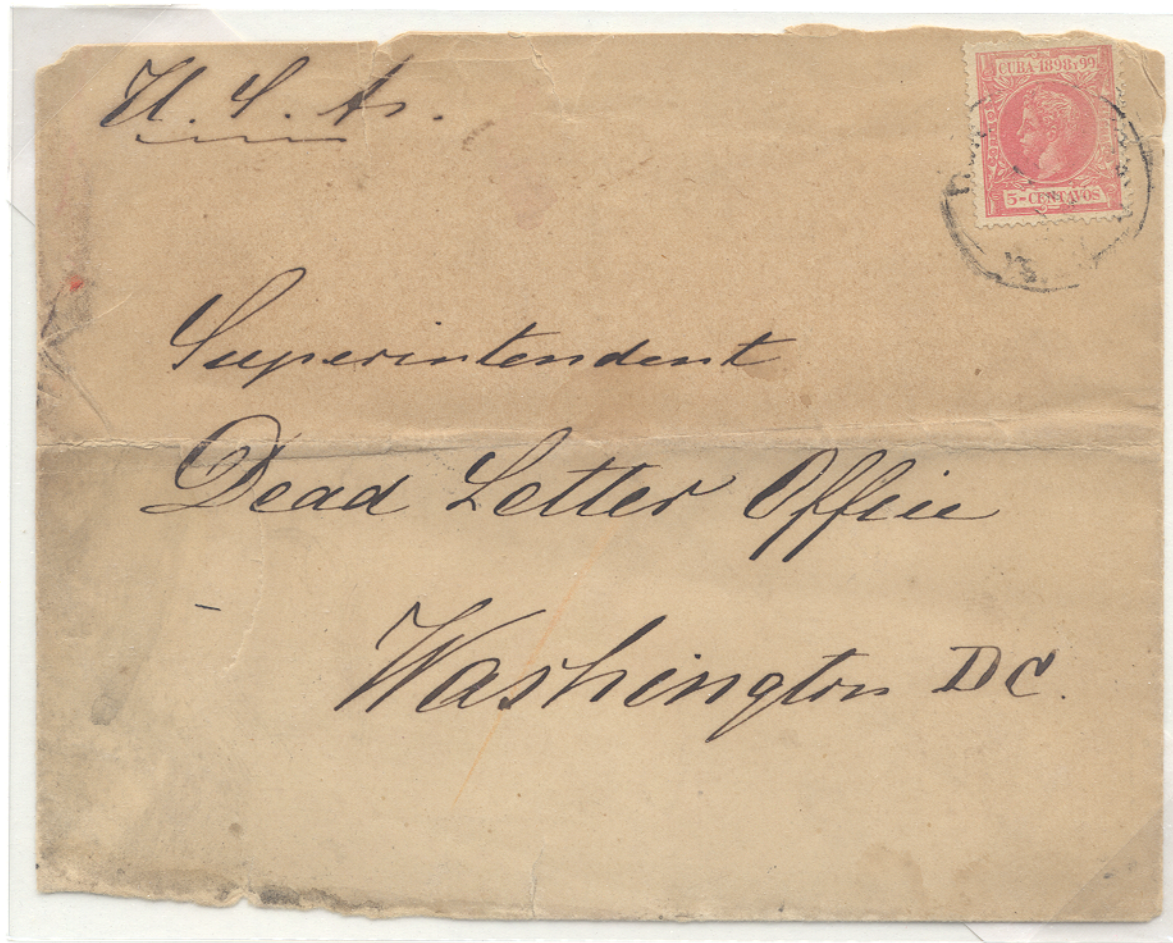 U. S. A.
CUBA-1898 Y 99
5-CENTAVOS
Superintendent
Dead Letter Office
Washington DC.